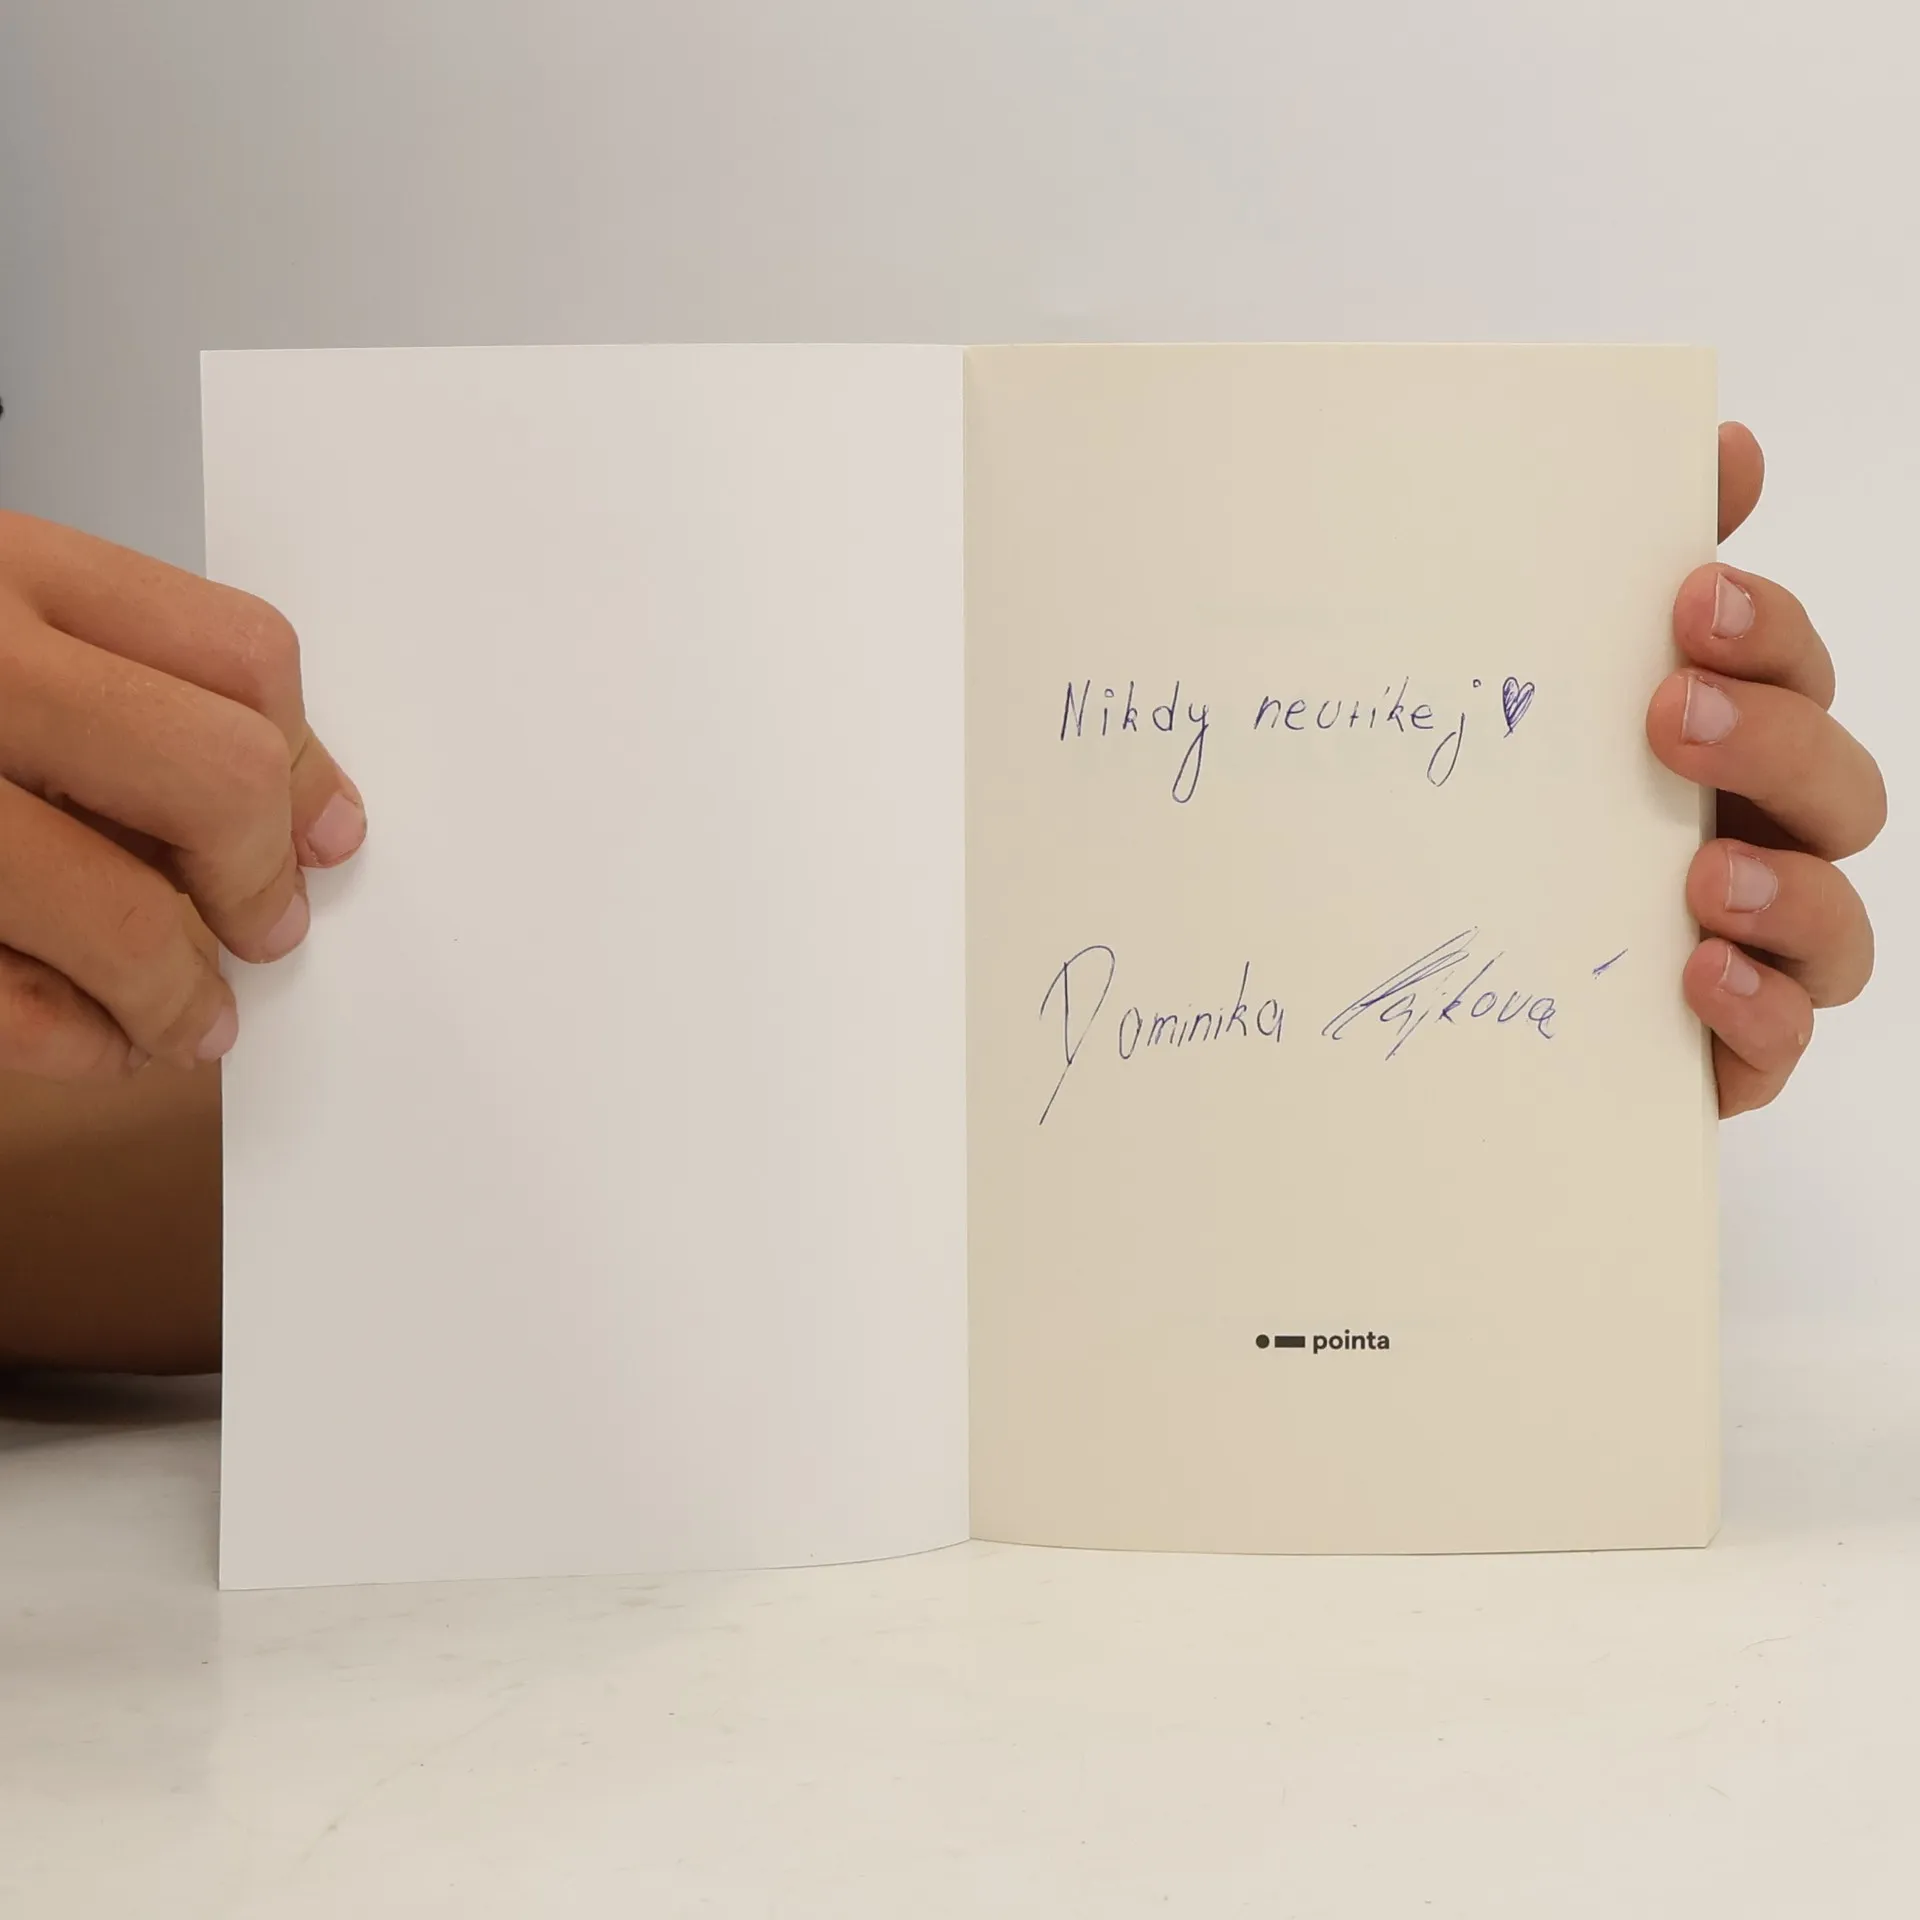 Nikdy neutíkej ♥
Dominika Lajková
pointa